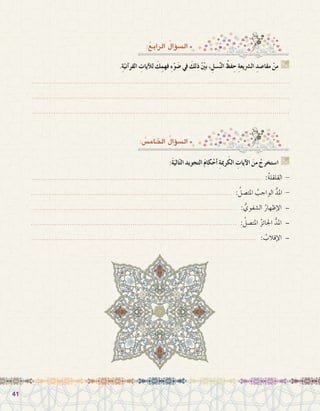 السؤالُ الرابعُ
منْ مقاصدِ الشريعةِ حفظُ النَّسلِ، بيِّنْ ذلكَ في ضَوءِ فهمِكَ للآياتِ القرآنيَّةِ.
السؤالُ الخامسُ
استخرجْ منَ الآياتِ الكريمةِ أحكامَ التجويدِ التاليَةَ:
– القلقلةُ:
– المدُّ الواجبُ المتصلُ:
– الإظهارُ الشفويُّ:
– المدُّ الجائزُ المتصلُ:
– الإقلابُ:
41